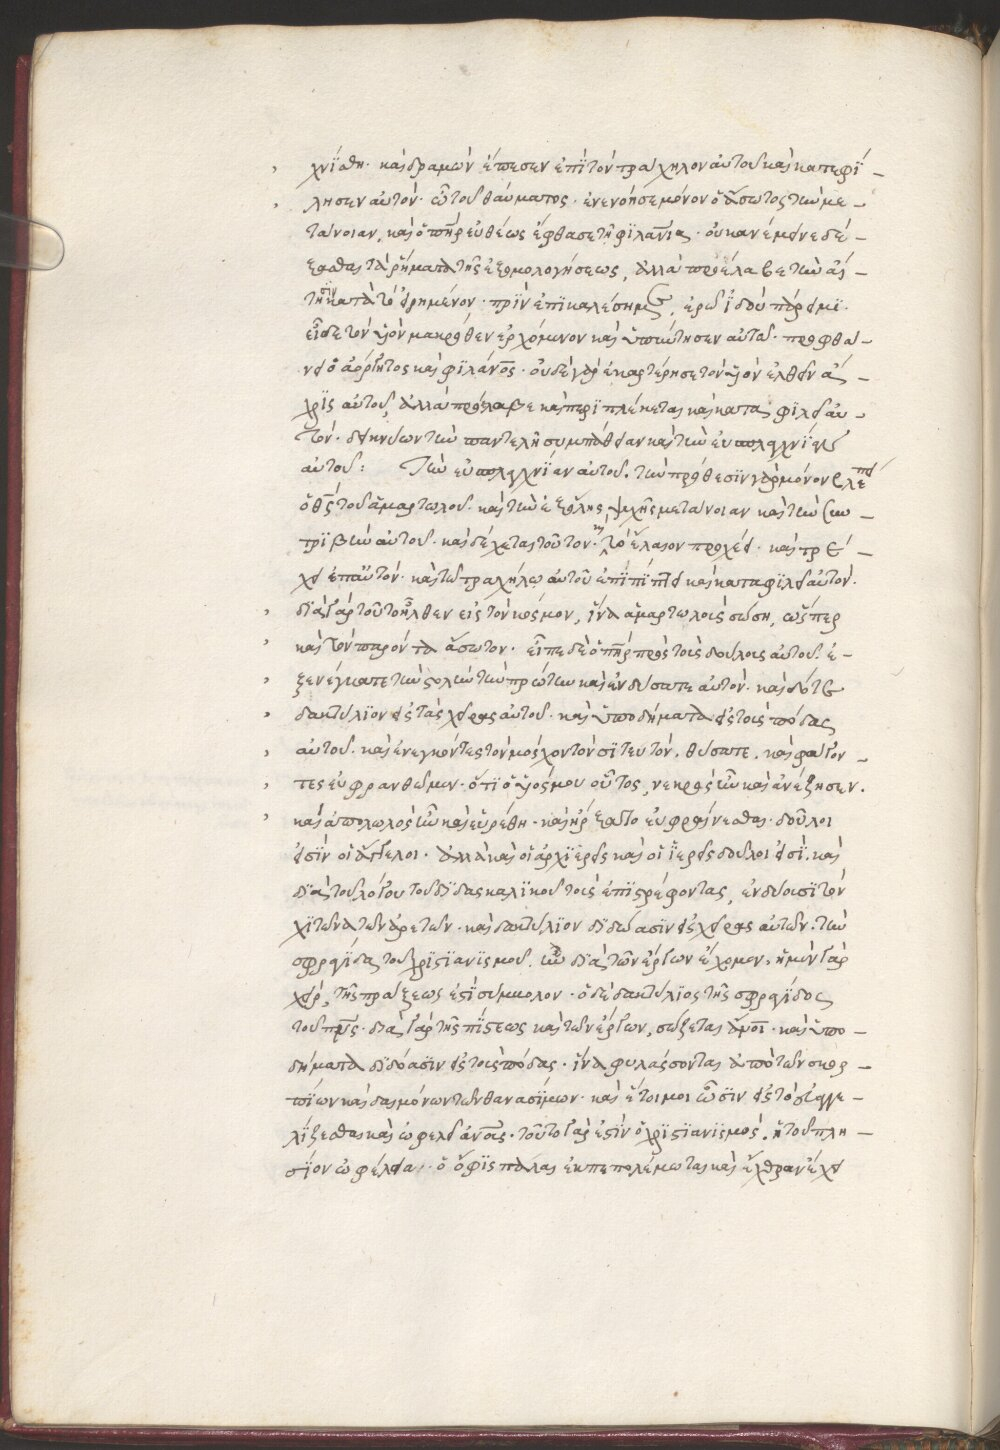 χνίσθη· καὶ δραμὼν ἐπεσεν ἐπὶ τὸν τράχηλον αὐτοῦ καὶ κατεφί –
λησεν αὐτόν· ὢ τοῦ θαύματος· ἐνενόησε μόνον ὁ ἄσωτος τὴν με –
τάνοιαν, καὶ ὁ πη̅ρ εὐθέως ἔφθασε τῇ φιλανί̅α· οὐκ ἀνέμεινε δέ –
ξασθαι τὰ ῥήματα τῆς ἐξομολογήσεως, ἀλλὰ προέλαβε τὴν αἴ –
τησιν κατὰ τὸ εἰρημένον· πρὶν ἐπικαλέσῃ με, ἐρῶ ἰδοὺ πάρειμι·
εἶδε τὸν υἱὸν μακρόθεν ἐρχόμενον καὶ ὑπήντησεν αὐτῷ· προφθά –
νει ὁ ἀόργητος καὶ φιλάνο̅ς· οὐδὲ γὰρ ἐκαρτέρησε τὸν υἱὸν ἐλθεῖν ἄ –
χρις αὐτοῦ, ἀλλὰ πρόλαβε καὶ περιπλέκεται καὶ καταφιλεῖ αὐ –
τόν· δεικνύων τὴν παντελῆ συμπάθειαν καὶ τὴν εὐσπλαγχνίαν
αὐτοῦ: Τὴν εὐσπλαγχνίαν αὐτοῦ. τὴν πρόθεσιν γὰρ μόνον βλέπει
ὁ θς̅ τοῦ ἁμαρτωλοῦ· καὶ τὴν ἐξ ὅλης ψυχῆς μετάνοιαν καὶ τὴν συν –
τριβὴν αὐτοῦ· καὶ δέχεται τοῦτον· τὸ ἔλαιον προχέει· καὶ τρέ –
χει ἐπ' αὐτόν· καὶ τῷ τραχήλῳ αὐτοῦ ἐπιπίπτει καὶ καταφιλεῖ αὐτόν.
διὰ γὰρ τοῦτο ἦλθεν εἰς τὸν κόσμον, ἵνα ἁμαρτωλοὺς σώσῃ, ὥσπερ
καὶ τὸν παρόντα ἄσωτον· εἶπε δὲ ὁ πη̅ρ πρὸς τοὺς δούλους αὐτοῦ· ἐ –
ξενέγκατε τὴν στολὴν τὴν πρώτην καὶ ἐνδύσατε αὐτόν· καὶ δότε
δακτύλιον εἰς τὰς χεῖρας αὐτοῦ· καὶ ὑποδήματα εἰς τοὺς πόδας
αὐτοῦ· καὶ ἐνεγκόντες τὸν μόσχον τὸν σιτευτόν, θύσατε, καὶ φαγόν –
τες εὐφρανθῶμεν· ὅτι ὁ υἱός μου οὗτος, νεκρὸς ἦν καὶ ἀνέζησεν.
καὶ ἀπολωλὸς ἦν καὶ εὑρέθη· καὶ ἤρξαντο εὐφραίνεσθαι· δοῦλοι
εἰσὶν οἱ ἄγγελοι· ἀλλὰ καὶ οἱ ἀρχιερεῖς καὶ οἱ ἱερεῖς δοῦλοι εἰσί· καὶ
διὰ τοῦ λόγου τοῦ διδασκαλικοῦ τοὺς ἐπιστρέφοντας, ἐνδύουσι τὸν
χιτῶνα τῶν ἀρετῶν· καὶ δακτύλιον διδόασιν εἰς χεῖρας αὐτῶν· τὴν
σφραγίδα τοῦ χριστιανισμοῦ, ἣν διὰ τῶν ἔργων ἔχομεν· ἡ μὲν γὰρ
χεὶρ, τῆς πράξεως ἐστὶ σύμβολον· ὁ δὲ δακτύλιος τῆς σφραγίδος
τοῦ πν̅ς· διὰ γὰρ τῆς πίστεως καὶ τῶν ἔργων, σώζεται ἄνο̅ι· καὶ ὑπο –
δήματα διδόασιν εἰς τοὺς πόδας· ἵνα φυλάσσονται ἀπὸ τῶν σκορ –
πίων καὶ δαιμόνων τῶν θανασίμων· καὶ ἕτοιμοι ὦσιν εἰς τὸ εὐαγγε –
λίζεσθαι καὶ ὠφελεῖν ἀνο̅υς· τοῦτο γάρ ἐστιν ὁ χριστιανισμός, ἡ τοῦ πλη –
σίον ὠφέλεια· ὁ ὄφις πάλαι ἐκπεπολέμωται καὶ ἔχθραν ἔχει